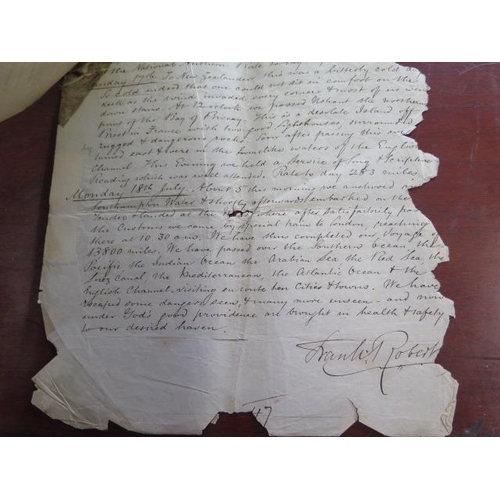 the National Anthem
Sunday 17th To New Zealanders this was a bitterly cold
So cold indeed that one could not sit in comfort on the
deck as the wind invaded every corner & most of us went
down stairs. At 12 o'clock we passed Ushant the northern
point of the Bay of Biscay. This is a desolate Island off
Brest in France with two good lighthouses surrounded
by rugged & dangerous rocks. Soon after passing this we
turned east & were in the homelike waters of the English
Channel. This Evening we held a service of song & Scripture
Reading which was well attended. Rate to day 283 miles.
Monday 18th July. About 5 this morning we anchored in
Southampton Water & shortly afterwards embarked on the
tender & landed at the where after satisfactorily passing
the Customs we some by special train to London, reaching
there at 10.30 am. We have thus completed our Voyage
13800 miles. We have passed over the Southern Ocean, the
Pacific the Indian Ocean the Arabian Sea the Red Sea the
Suez Canal, the Mediterranean, the Atlantic Ocean & the
English Channel, visiting en route ten Cities & towns. We have
escaped some dangers seen, & many more unseen, and now
under God's good providence are brought in health & safety
to our desired haven.
Frank T Robert
47